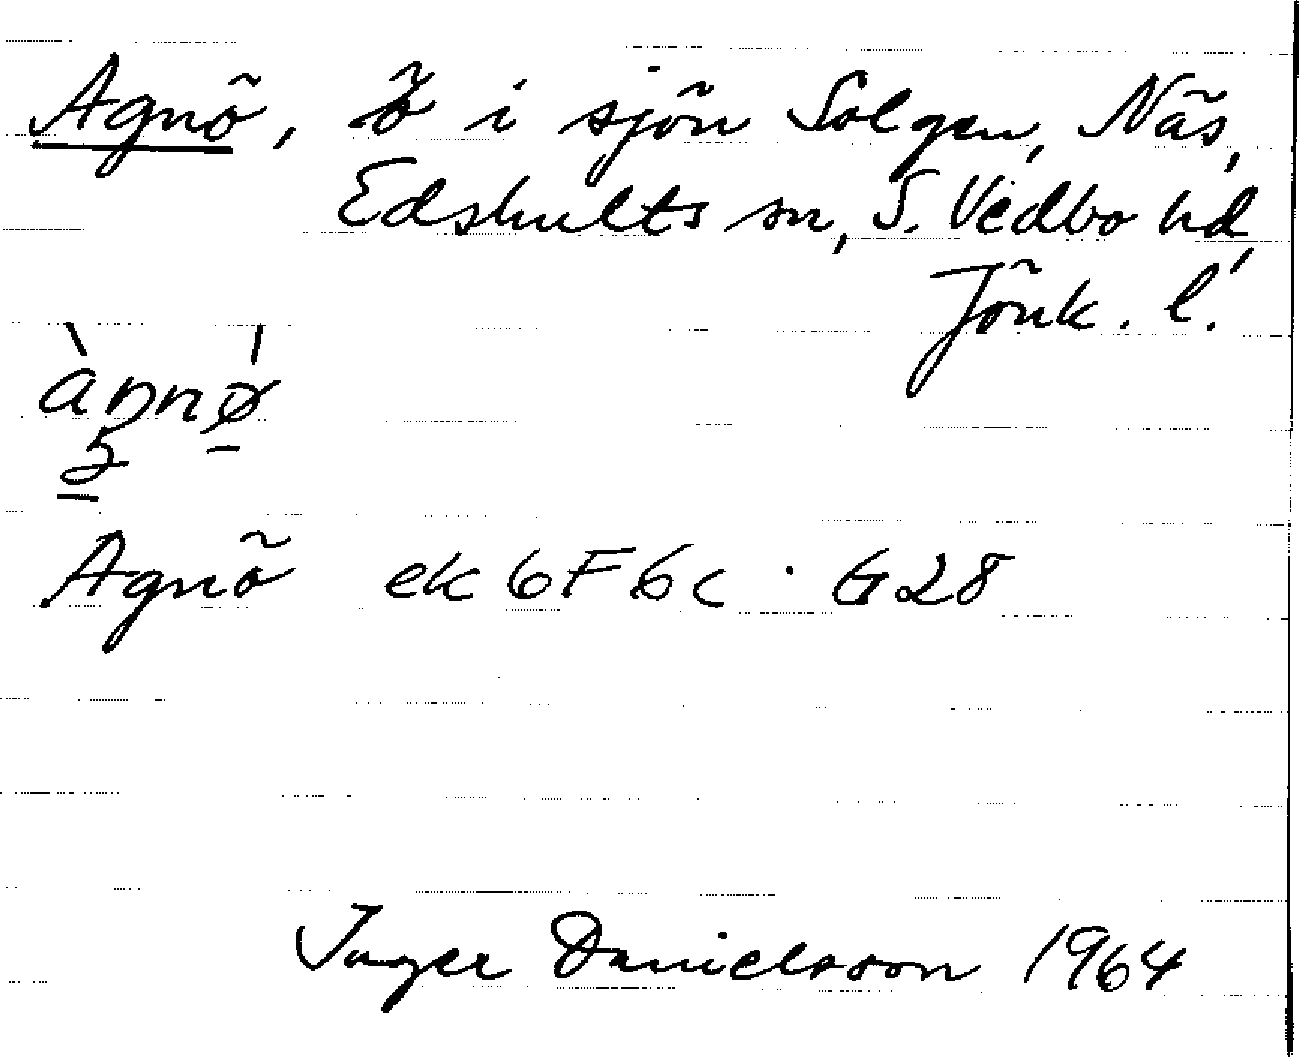 Agnö, ö i sjön Solgen, Näs,
Edshults sn, S. Vedbo hd,
Jönk. l.
àŋnø
Agnö ek 6F6c · G28
Inger Danielsson 1964